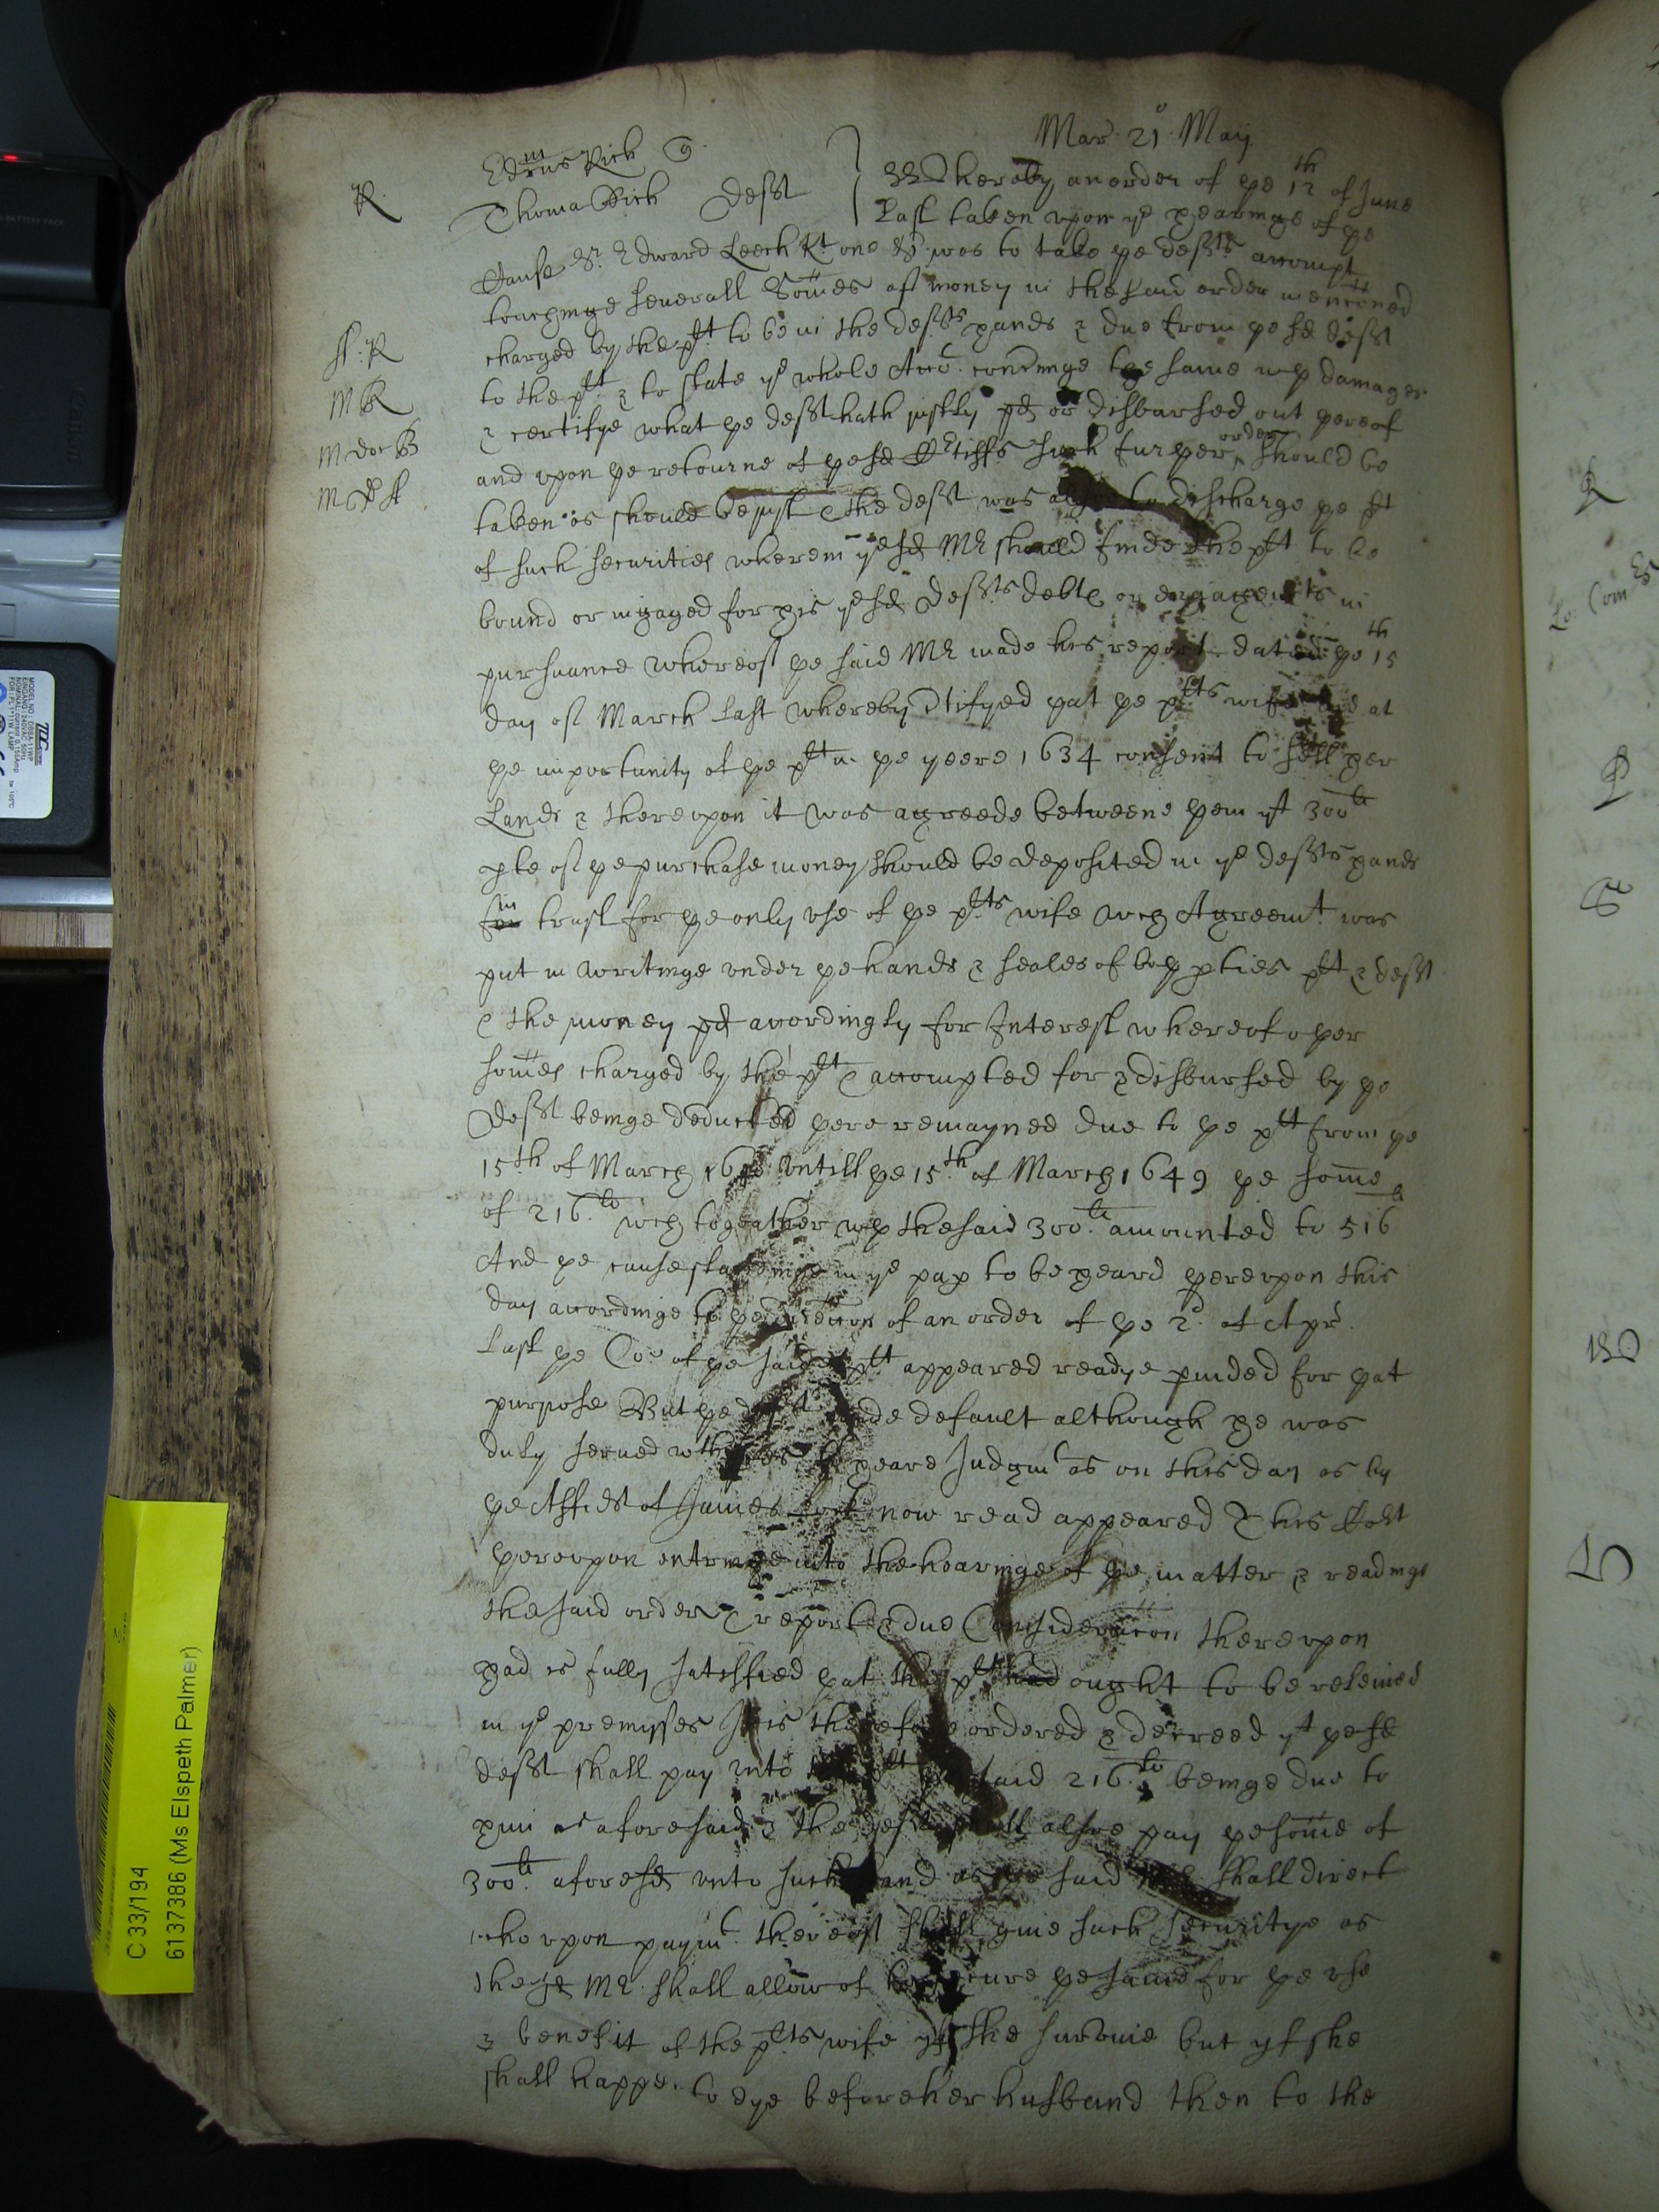 Mar. 21° Maij
R.
Edrus Rich
Thoma Rich Deft
Whereby an order of þe 12th of June
last taken vpon ye hearinge of þe
Cause Sr. Edward Leech Kt one &c was to take þe defts accompt
touchinge seuerall Somes of money in the said order mencioned
charged by the plt to be in the defts hands & due from þe sd deft
to the plt & to state ye whole Acco: concinge the same wth damages
& certifye what þe deft hath justly pd or disbursed out hereof
and vpon þe retourne of þe sd Crtifft such further order should be
taken as should be just & the deft was also to discharge þe plt
of such securities wherein ye sd Mr should finde the plt to be
bound or ingaged for his ye sd Defts debts or engagemts in
pursuance whereof þe said Mr made his report dated þe 15th
day of March last whereby Ctifyed þat þe plts wife did at
þe importunity of þe plt in þe yeere 1634 consent to sell her
Lands & therevpon it was agreede betweene þem yt 300li
þte of þe purchase money should be deposited in ye defts hands
in trust for þe only vse of þe plts wife wch Agreemt was
put in writinge vnder þe hands & seales of both pties plt & deft
& the money pd accordingly for Interest whereof other
somes charged by the plt & accompted for & disbursed by þe
Deft beinge deducted þere remayned due to þe plt from þe
15th of March vntill þe 15th of March 1649 þe some
of 216li wch togeather wth the said 300li amounted to 516li
And þe cause standinge in ye pap to be heard þerevpon this
day accordinge to þe direccion of an order of þe 2d of Apr.
last þe Co: of þe said plt appeared readye pvided for þat
purpose But þe deft made default although he was
duly serued wth to heare Judgmt as on this day as by
þe Affidt of James now read appeared This Cort
þerevpon entringe into the hearinge of þe matter & readinge
the said order & report & due Consideracion therevpon
had is fully satisfied þat the plt ought to be releiued
in ye premisses It is therefore ordered & decreed yt þe sd
deft shall pay vnto the plt þe said 216li beinge due to
him as aforesaid & the deft shall alsoe pay þe some of
300li aforesd vnto such hand as þe said Mr shall direct
who vpon paymt thereof shall giue such securitye as
the sd Mr. shall allow of to secure þe same for þe vse
& benefit of the plts wife yf she suruiue but yf she
shall happen to dye before her husband then to the
C 33/194
61137386 (Ms Elspeth Palmer)